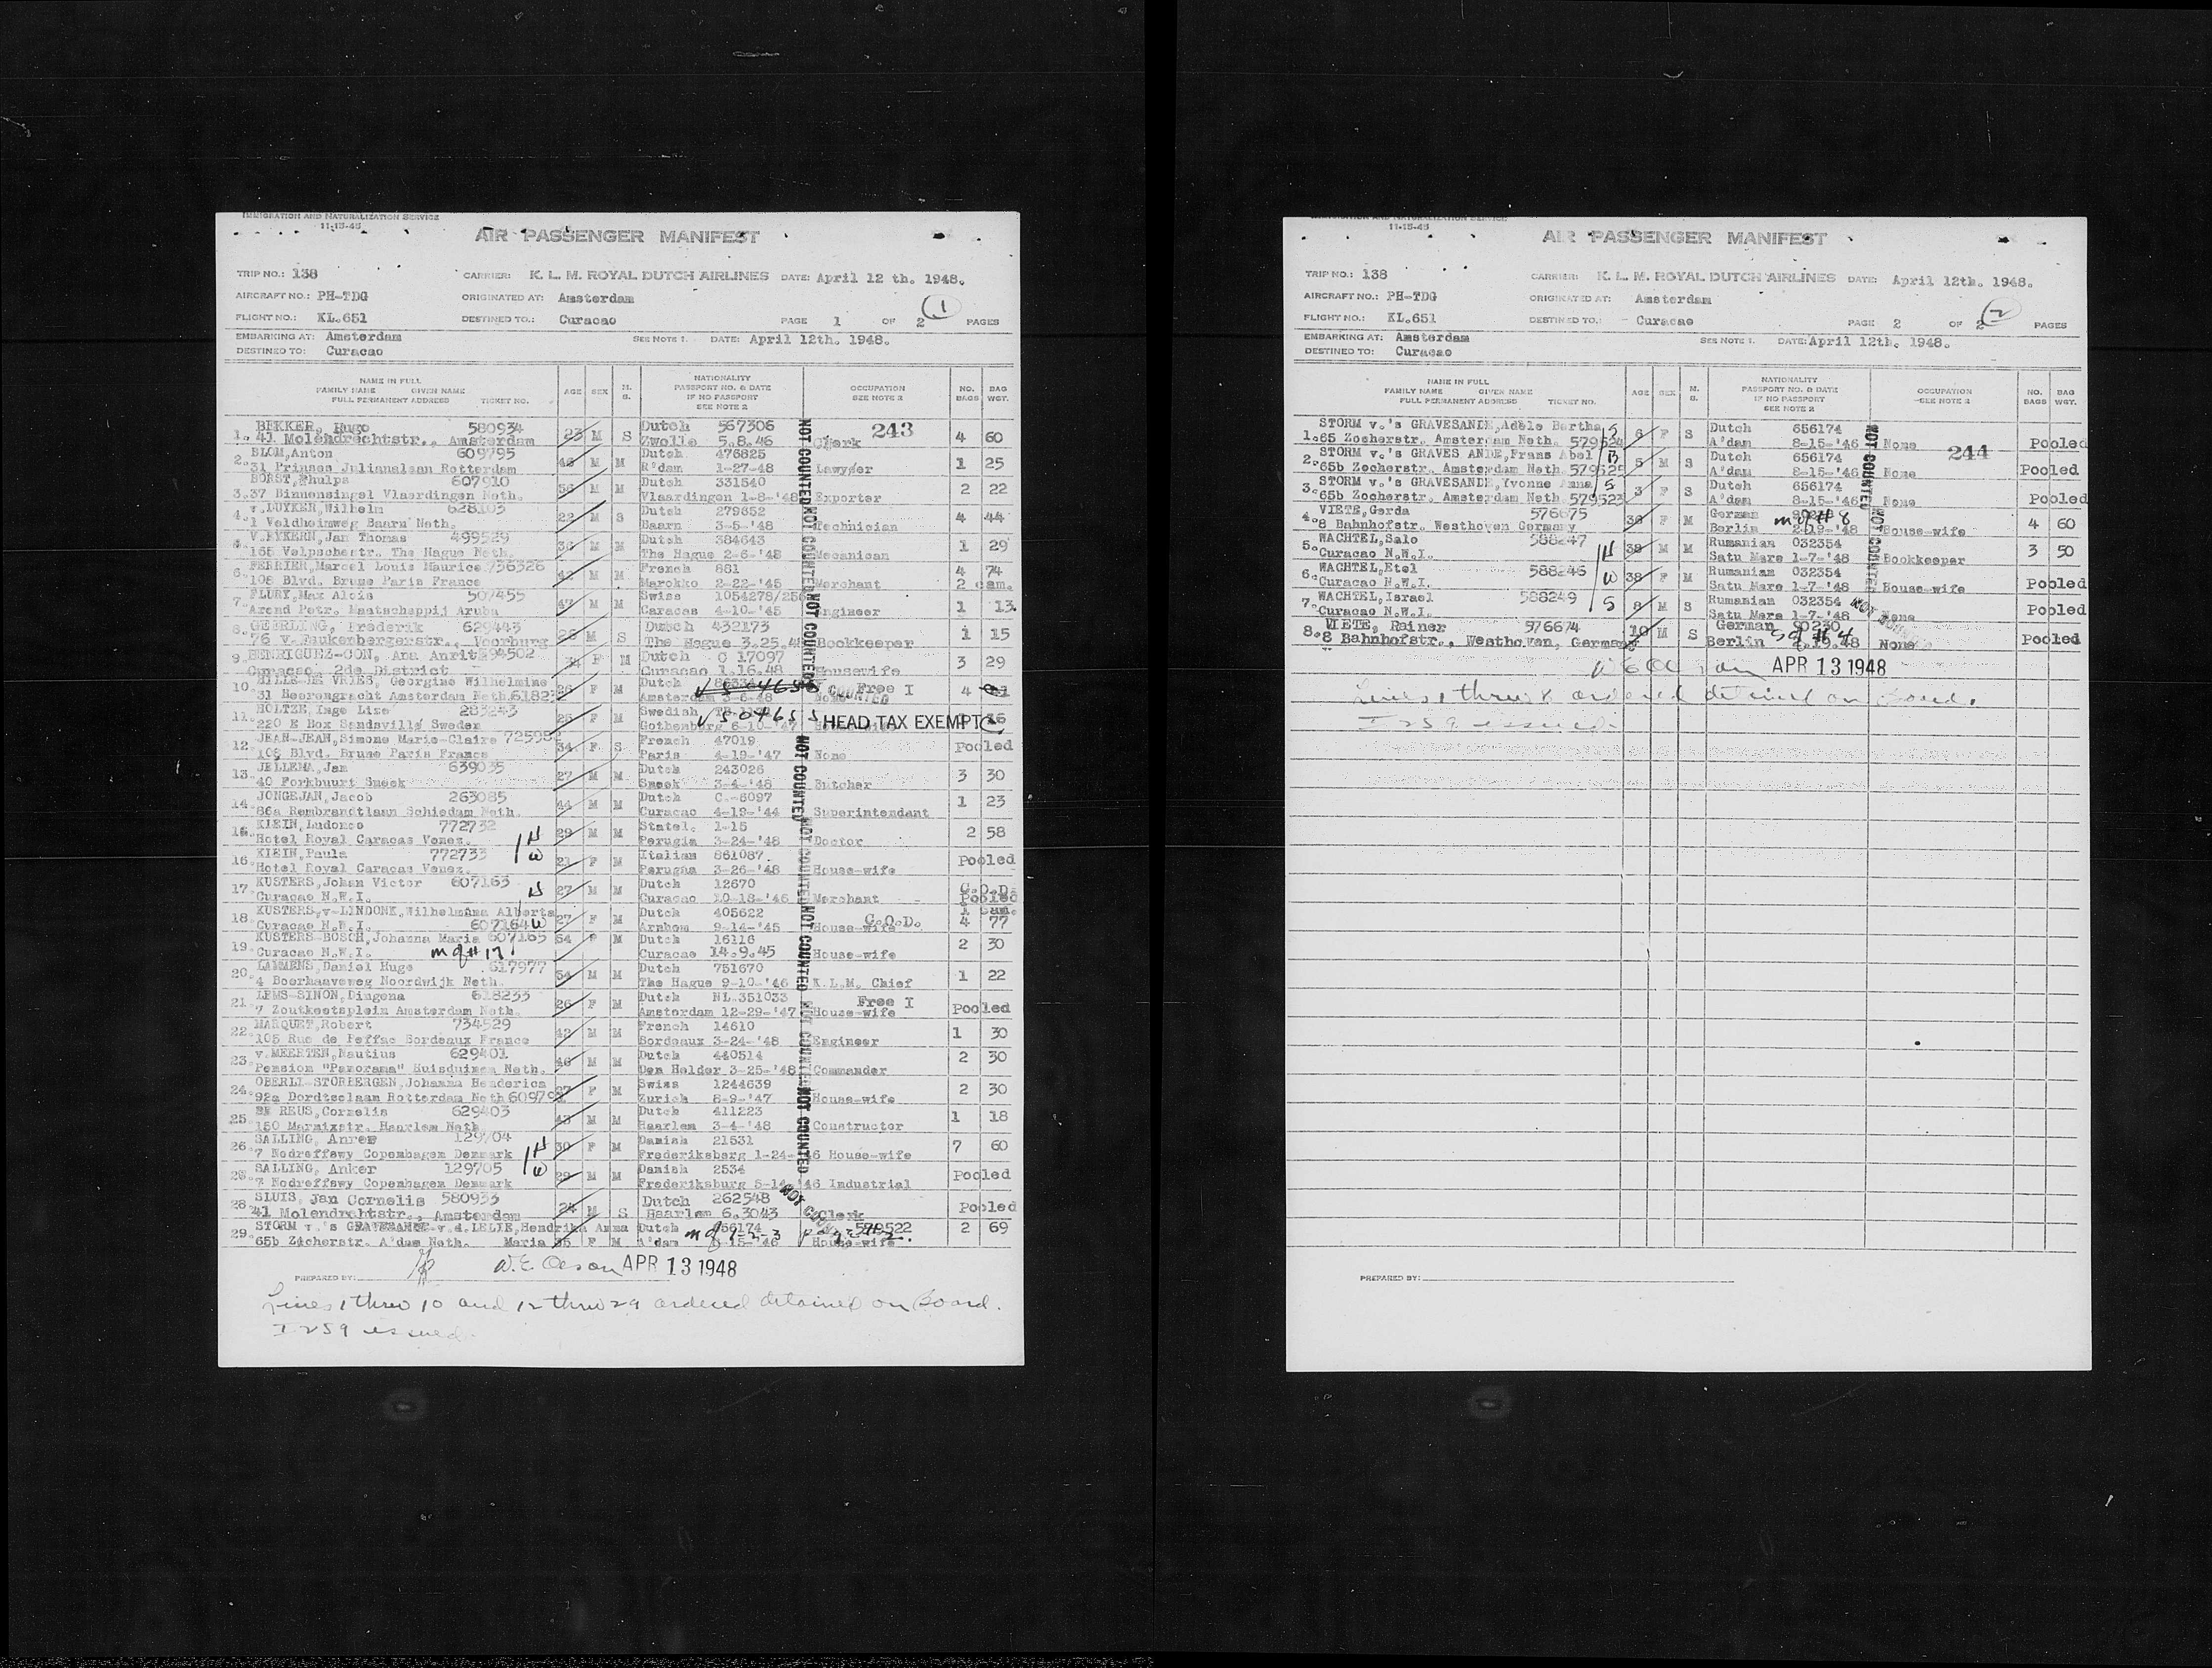 IMMIGRATION AND NATURALIZATION SERVICE
11-15-45
AIR PASSENGER MANIFEST
TRIP NO.: 138 CARRIER: K. L. M. ROYAL DUTCH AIRLINES DATE: April 12 th. 1948.
AIRCRAFT NO.: PH-TDG ORIGINATED AT: Amsterdam
FLIGHT NO.: KL.651 DESTINED TO.: Curacao PAGE 1 OF 2 PAGES
1
EMBARKING AT: Amsterdam SEE NOTE 1. DATE: April 12th. 1948.
DESTINED TO: Curacao
NAME IN FULL
FAMILY NAME GIVEN NAME
FULL PERMANENT ADDRESS TICKET NO.
AGE SEX M. S.
NATIONALITY
PASSPORT NO. & DATE
IF NO PASSPORT
SEE NOTE 2
OCCUPATION
SEE NOTE 2
NO. BAGS BAG WGT.
243
BEKKER, Hugo 580934 Dutch 567306
1. 41 Molendrechtstr., Amsterdam 23 M S Zwolle 5.8.46 Clerk 4 60
BLOM,Anton 609795 Dutch 476825
2. 31 Prinses Julianalaan Rotterdam M M R'dam 1-27-48 Lawyer 1 25
BORST,Phulps 607910 Dutch 331540
3. 37 Binnensingel Vlaardingen Neth. 56 M M Vlaardingen 1-8-'48 Exporter 2 22
v.LUYKEN,Wilhelm 628103 Dutch 279652
4. 1 Veldheimweg Baarn Neth. 22 M S Baarn 3-5-'48 Technician 4 44
V.EYKERN,Jan Thomas 499529 Dutch 384643
165 Velpschestr. The Hague Neth. 36 M M The Hague 2-6-'48 Mecanican 1 29
FERRIER,Marcel Louis Maurice 736326 French 861
6. 108 Blvd. Brune Paris France 42 M M Marokko 2-22-'45 Merchant 4 74
2 cam.
FLURY,Max Alois 507455 Swiss 1054278/256
7. Arend Petr. Maatschappij Aruba 47 M M Caracas 4-10-'45 Engineer 1 13
GEERLING, Frederik 629443 Dutch 432173
8. 76 v.Faukenbergerstr., Voorburg 26 M S The Hague 3.25.48 Bookkeeper 1 15
HENRIQUEZ-CON, Ana Anrit 294502 Dutch C 17097
9. Curacao, 2de District 34 F M Curacao 1.16.48 Housewife 3 29
HILLE-DE VRIES, Georgine Wilhelmine Dutch Free I
10. 31 Beerengracht Amsterdam Neth. F M None 4
HOLTZE,Inge Lise 283243 Swedish V 504655 HEAD TAX EXEMPT
11. 220 E Box Sandsville Sweden 25 F M Gothenburg 6-10-'47
JEAN-JEAN,Simone Marie-Claire 725982 French 47019 Pooled
12. 108 Blvd. Brune Paris France 34 F S Paris 4-19-'47 None
JELLEMA,Jan 639035 Dutch 243026
13. 40 Forkbuurt Sneek 27 M M Sneek 3-4-'48 Butcher 3 30
JONGEJAN,Jacob 263085 Dutch C.-6097
14. 86a Rembrandtlaan Schiedam Neth. 44 M M Curacao 4-19-'44 Superintendant 1 23
KLEIN,Ludonco 772732 Statel. 1-15
15. Hotel Royal Caracas Venez. H 29 M M Perugia 3-24-'48 Doctor 2 58
KLEIN,Paula 772733 Italian 861087. Pooled
16. Hotel Royal Caracas Venez. W 21 F M Perugia 3-26-'48 House-wife
KUSTERS,Johan Victor 607163 Dutch 12670 C.O.D.
17. Curacao N.W.I. H 27 M M Curacao 10-18-'46 Merchant Pooled
KUSTERS,v-LINDONK,Wilhelmina Alberta Dutch 405622 C.O.D. 1 cam.
18. Curacao N.W.I. 607164 W 27 F M Arnhem 9-14-'45 House-wife 4 77
KUSTERS-BOSCH,Johanna Maria 607165 64 F M Dutch 16116
19. Curacao N.W.I. m of # 17 Curacao 14.9.45 House-wife 2 30
LAMMENS,Daniel Hugo 617977 Dutch 751670
20. 4 Boerhaaveweg Noordwijk Neth. 34 M M The Hague 9-10-'46 K.L.M. Chief 1 22
LEMS-SINON,Dingena 618233 Dutch NL.351033 Free I
21. 7 Zoutkeetsplein Amsterdam Neth. 26 F M Amsterdam 12-29-'47 House-wife Pooled
MARQUET,Robert 734529 French 14610
22. 105 Rue de Peffac Bordeaux France 42 M M Bordeaux 3-24-'48 Engineer 1 30
v.MEERTEN,Nautius 629401 Dutch 440514
23. Pension "Panorama" Huisduinen Neth. 46 M M Den Helder 3-25-'48 Commander 2 30
OBERLI-STORBERGEN,Johanna Henderica Swiss 1244639
24. 92a Dordtselaan Rotterdam Neth 60979 27 F M Zurich 8-9-'47 House-wife 2 30
DE REUS,Cornelis 629403 Dutch 411223
25. 150 Marnixstr. Haarlem Neth. 43 M M Haarlem 3-4-'48 Constructor 1 18
SALLING, Anrep 129704 Danish 21531
26. 7 Nodreffswy Copenhagen Denmark H 30 F M Frederiksberg 1-24-'46 House-wife 7 60
SALLING, Anker 129705 Danish 2534
7 Nodreffswy Copenhagen Denmark W 29 M M Frederiksburg 5-14-'46 Industrial Pooled
SLUIS, Jan Cornelis 580933 Dutch 262548
28. 41 Molendrehtstr., Amsterdam 24 M S Haarlem 6.3043 Clerk Pooled
STORM v.'s GRAVESANDE-v.d.LELIE,Hendrika Anna Dutch 656174 m of 1-2-3 579522
29. 65b Zocherstr. A'dam Neth. Maria 35 F M A'dam 8-15-'46 House-wife 2 69
NOT COUNTED
PREPARED BY: W.E. Olson APR 13 1948
Lines 1 thru 10 and 12 thru 29 ordered detained on Board.
I 259 issued.
IMMIGRATION AND NATURALIZATION SERVICE
11-15-45
AIR PASSENGER MANIFEST
TRIP NO.: 138 CARRIER: K. L. M. ROYAL DUTCH AIRLINES DATE: April 12th. 1948.
AIRCRAFT NO.: PH-TDG ORIGINATED AT: Amsterdam
FLIGHT NO.: KL.651 DESTINED TO.: Curacao PAGE 2 OF 2 PAGES
2
EMBARKING AT: Amsterdam SEE NOTE 1. DATE: April 12th. 1948.
DESTINED TO: Curacao
NAME IN FULL
FAMILY NAME GIVEN NAME
FULL PERMANENT ADDRESS TICKET NO.
AGE SEX M. S.
NATIONALITY
PASSPORT NO. & DATE
IF NO PASSPORT
SEE NOTE 2
OCCUPATION
SEE NOTE 2
NO. BAGS BAG WGT.
STORM v.'s GRAVESANDE,Adèle Bertha S Dutch 656174
1. 65 Zocherstr. Amsterdam Neth. 579524 6 F S A'dam 8-15-'46 None Pooled
244
STORM v.'s GRAVES ANDE,Frans Abel B Dutch 656174
2. 65b Zocherstr. Amsterdam Neth. 579525 5 M S A'dam 8-15-'46 None Pooled
STORM v.'s GRAVESANDE,Yvonne Anna S Dutch 656174
3. 65b Zocherstr. Amsterdam Neth. 579523 3 F S A'dam 8-15-'46 None Pooled
VIETE,Gerda 576675 German m of # 8
4. 8 Bahnhofstr. Westhoven Germany 36 F M Berlin 2-19-'48 House-wife 4 60
WACHTEL,Salo 588247 Rumanian 032354
5. Curacao N.W.I. H 39 M M Satu Mare 1-7-'48 Bookkeeper 3 50
WACHTEL,Etel 588246 Rumanian 032354
6. Curacao N.W.I. W 38 F M Satu Mare 1-7-'48 House-wife Pooled
WACHTEL,Israel 588249 Rumanian 032354
7. Curacao N.W.I. S 8 M S Satu Mare 1-7-'48 None Pooled
VIETE, Rainer 576674 German 90230
8. 8 Bahnhofstr., Westhoven, Germany 10 M S Berlin 2.19.48 None Pooled
NOT COUNTED
APR 13 1948
Lines 1 thru 8 ordered detained on Board.
I 259 issued.
PREPARED BY: